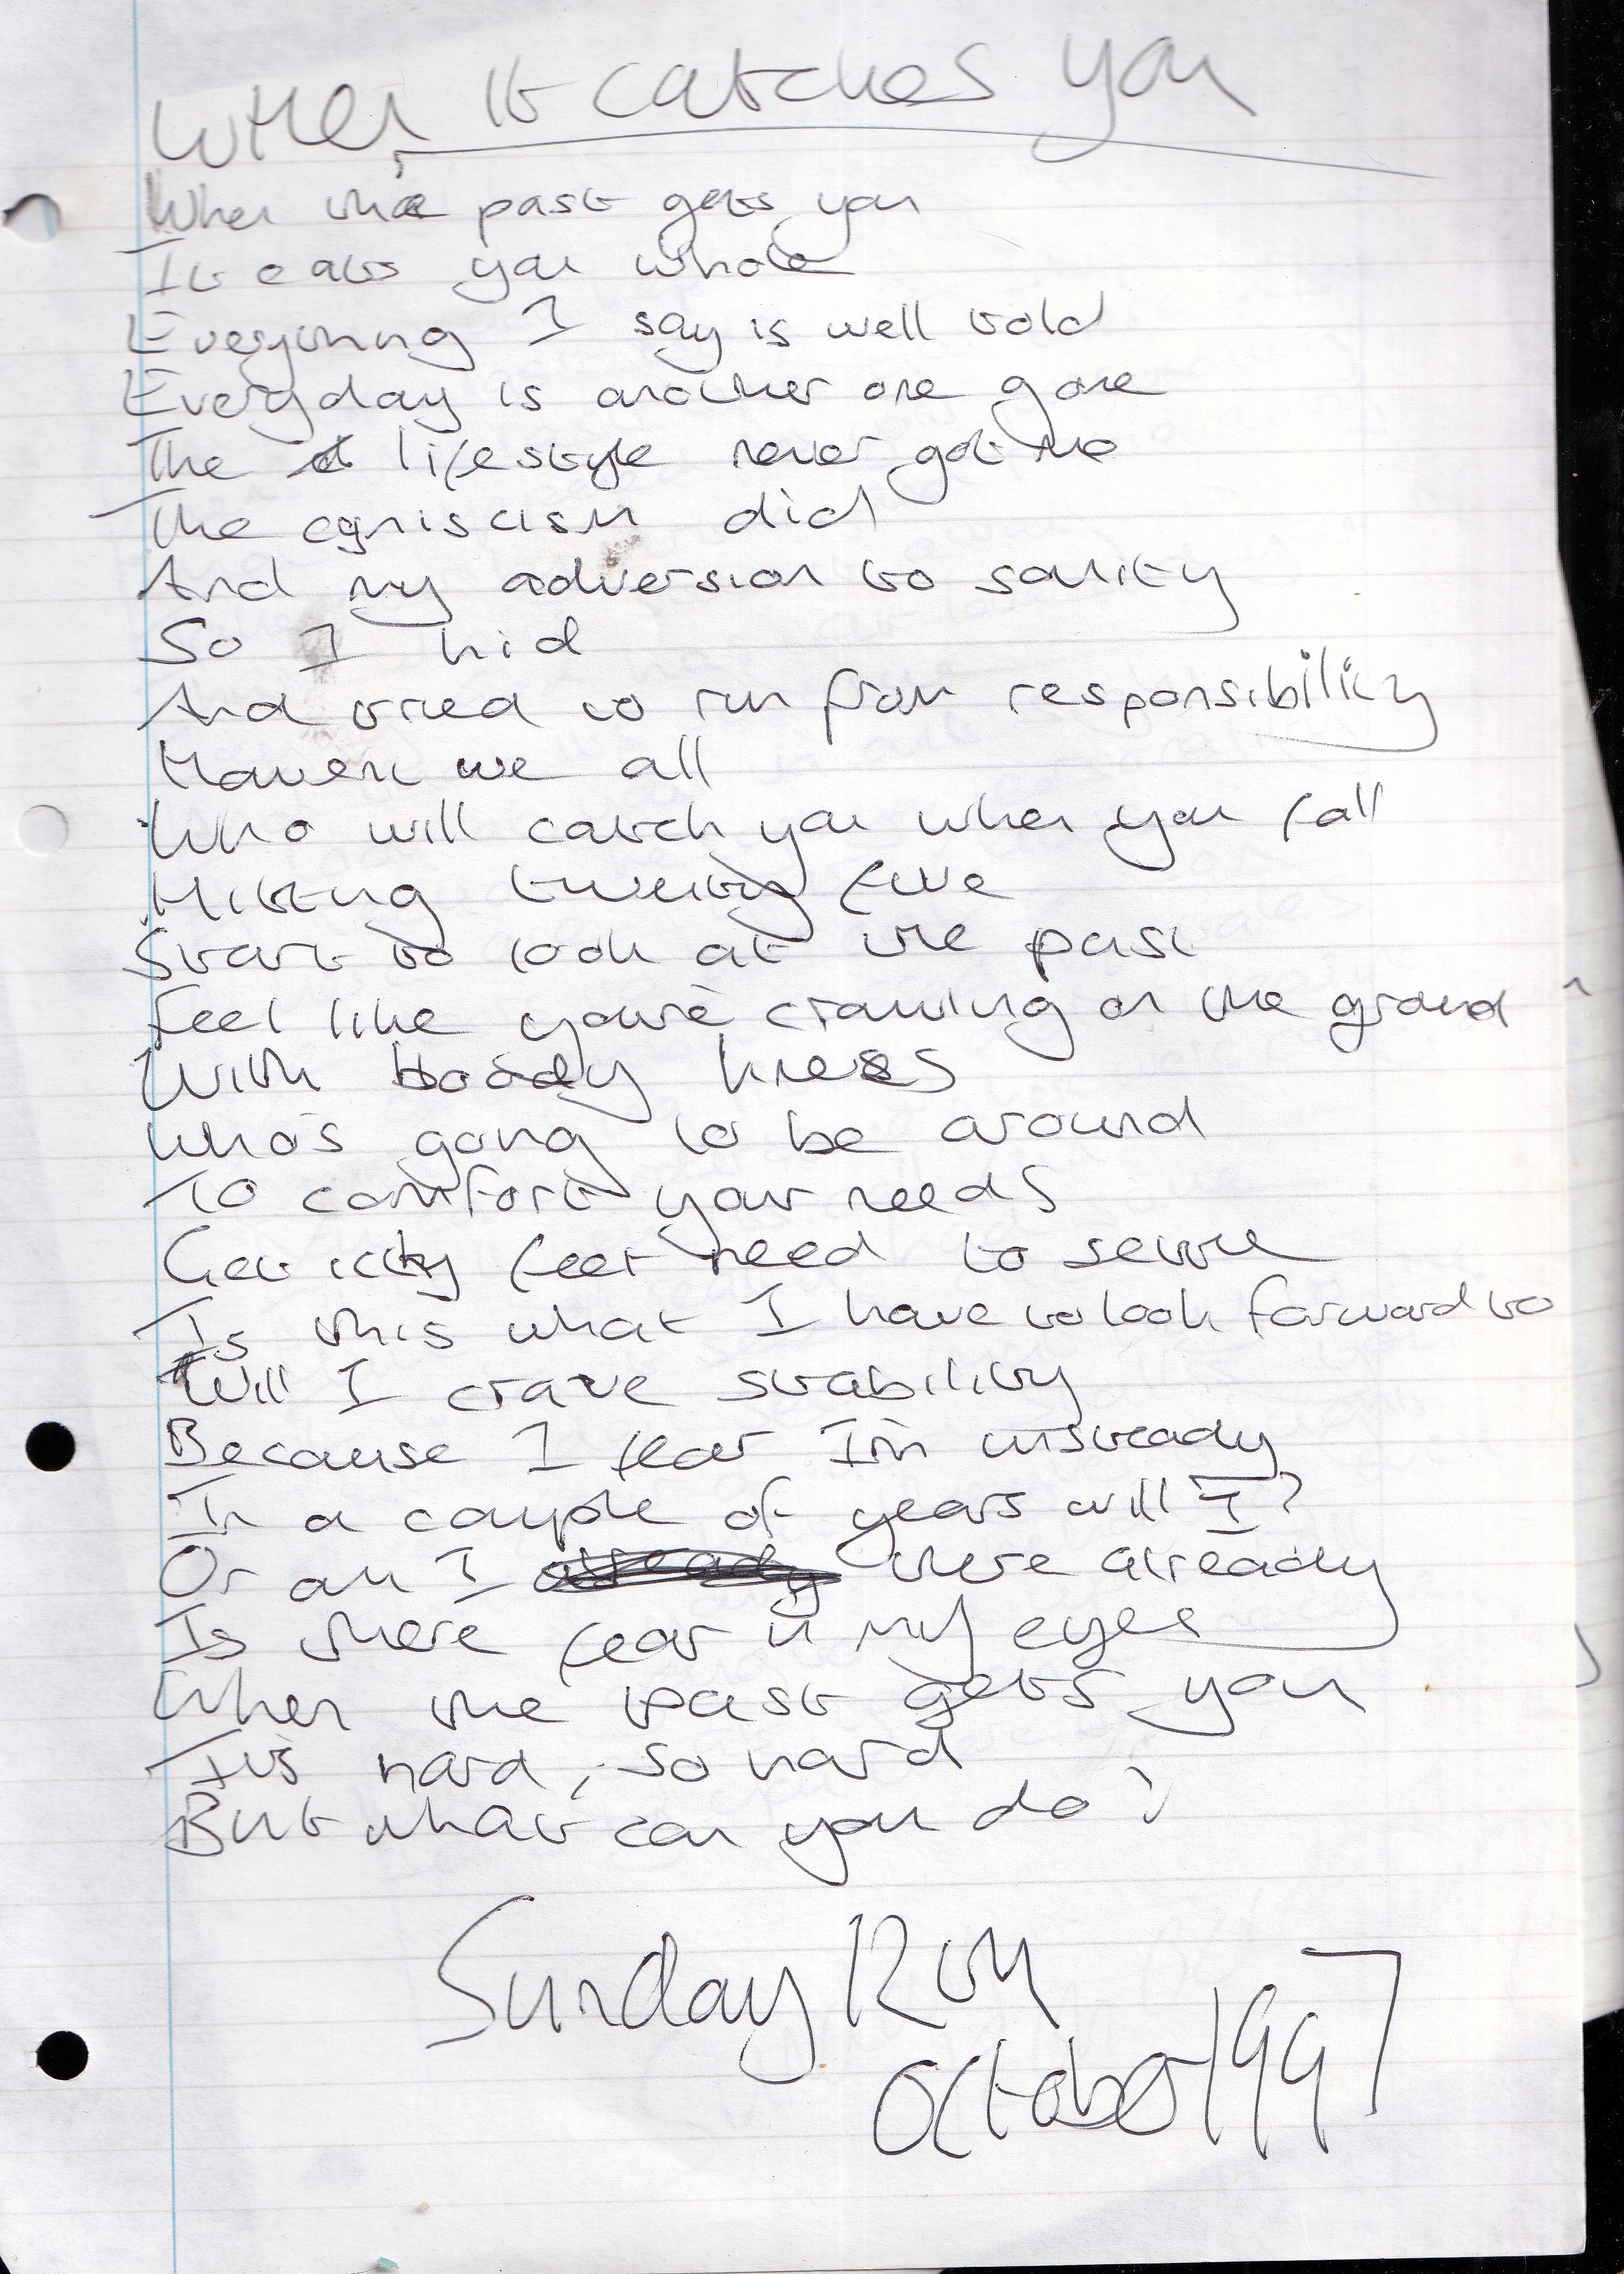 When It catches you
When the past gets you
It eats you whole
Everything I say is well told
Everyday is another one gone
The lifestyle never got me
The cyniscism did
And my adversion to sanity
So I hid
And tried to run from responsibility
Haven we all
Who will catch you when you fall
Hitting twenty five
Start to look at the past
Feel like youre crawling on the ground
With bloody knees
Who's going to be around
To comfort your needs
Get itchy feet need to settle
Is this what I have to look forward to
Will I crave stability
Because I fear I'm unsteady
In a couple of years will I?
Or am I already there already
Is there fear in my eyes
When the past gets you
It's hard, so hard
But what can you do?
Sunday 12th
October 1997